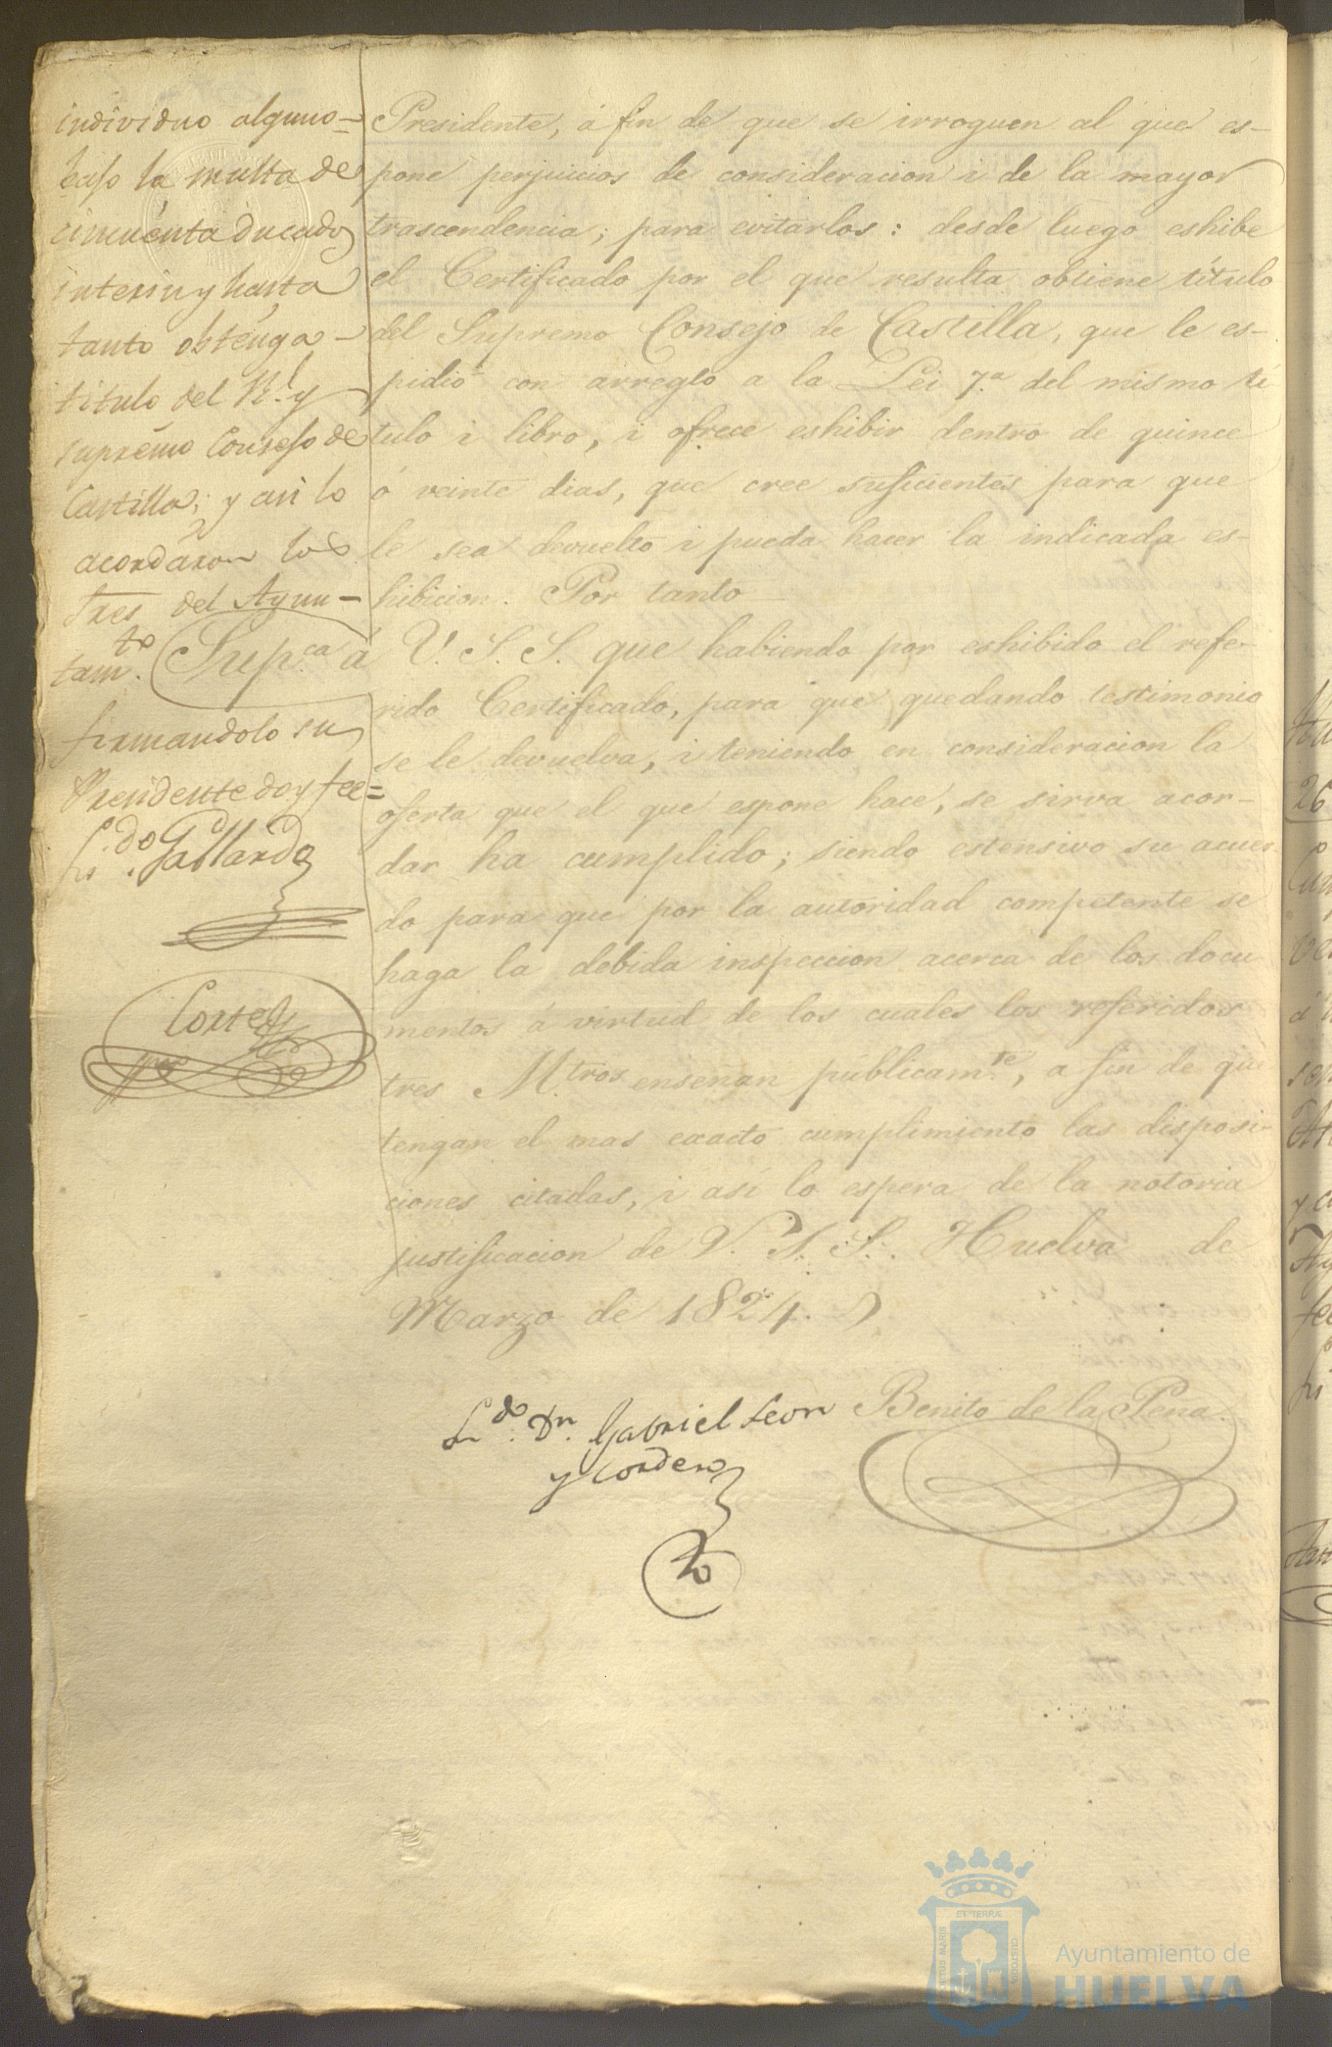 individuo alguno=
bajo la multa de
cincuenta ducados
interin y hasta
tanto obtenga -
titulo del Rl. y
supremo Consejo de
Castilla; y asi lo
acordaron los
Sres del Ayun-
tamto.
firmandolo su
Presidente doy fee=
Lizdo. Gallardo
Cortes
Presidente, á fin de que se irroguen al que es-
pone perjuicios de consideracion i de la mayor
trascendencia; para evitarlos: desde luego eshibe
el Certificado por el que resulta obtiene título
del Supremo Consejo de Castilla, que le es-
pidió con arreglo a la Lei 7.ª del mismo tí
tulo i libro, i ofrece eshibir dentro de quince
ó veinte dias, que cree suficientes para que
le sea devuelto i pueda hacer la indicada es-
hibicion. Por tanto
Supca á V. S. S. que habiendo por eshibido el refe-
rido Certificado, para que quedando testimonio
se le devuelva, i teniendo en consideracion la
oferta que el que espone hace, se sirva acor-
dar ha cumplido; siendo estensivo su acuer
do para que por la autoridad competente se
haga la debida inspeccion acerca de los docu
mentos á virtud de los cuales los referidos
tres M.tros enseñan publicam.te, a fin de que
tengan el mas exacto cumplimiento las disposi-
ciones citadas, i así lo espera de la notoria
justificacion de V. S. S. Huelva de
Marzo de 1824.
Ldo. Dn. Gabriel Leon
y Cordero
Benito de la Pena
ET TERRÆ
CUSTODIA
PORTUS MARIS
Ayuntamiento de
HUELVA